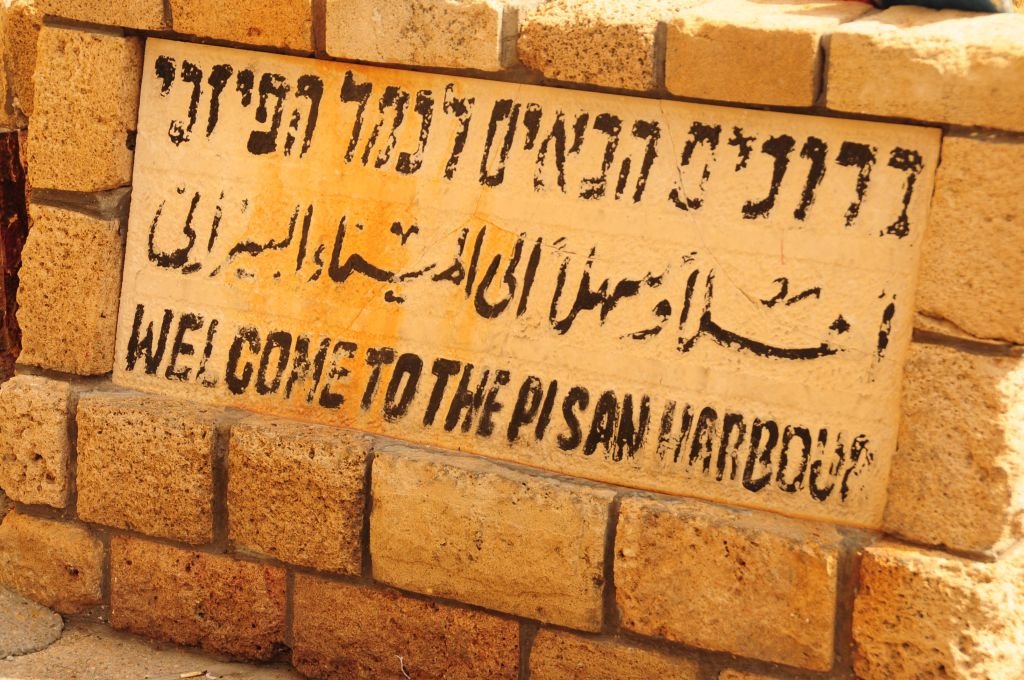 ברוכים הבאים לנמל הפיזני
اهلا وسهلاً الى الميناء البيزاني
WELCOME TO THE PISAN HARBOUR